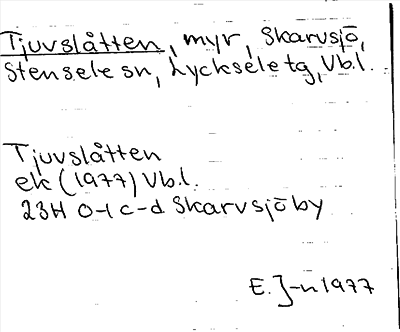 Tjuvslåtten, myr, Skarvsjö,
Stensele sn, Lycksele tg, Vb.l.
Tjuvslåtten
ek (1977) Vb.l.
23H 0-1 c-d Skarvsjöby
E. J-n 1977